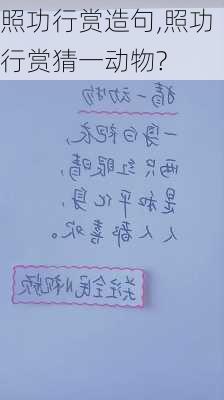 照功行赏造句,照功
行赏猜一动物?
猜一动物
一身白袍衣,
两只红眼睛,
是和平化身,
人人都喜欢。
关注全民小视频